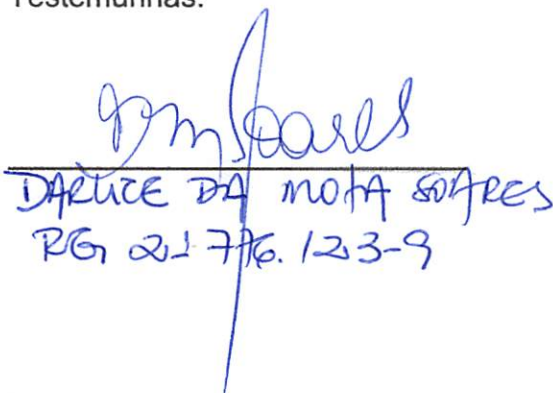 Testemunhas:
DMSoares
DARLICE DA MOTA SOARES
RG 21776.123-9